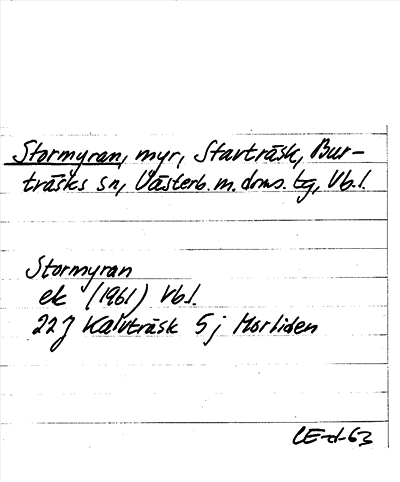 Stormyran, myr, Stavträsk, Bur-
träsks sn, Västerb. m. doms. tg, Vb.l.
Stormyran
ek (1961) Vb.l.
22J Kalvträsk 5j Morliden
CE-d-63